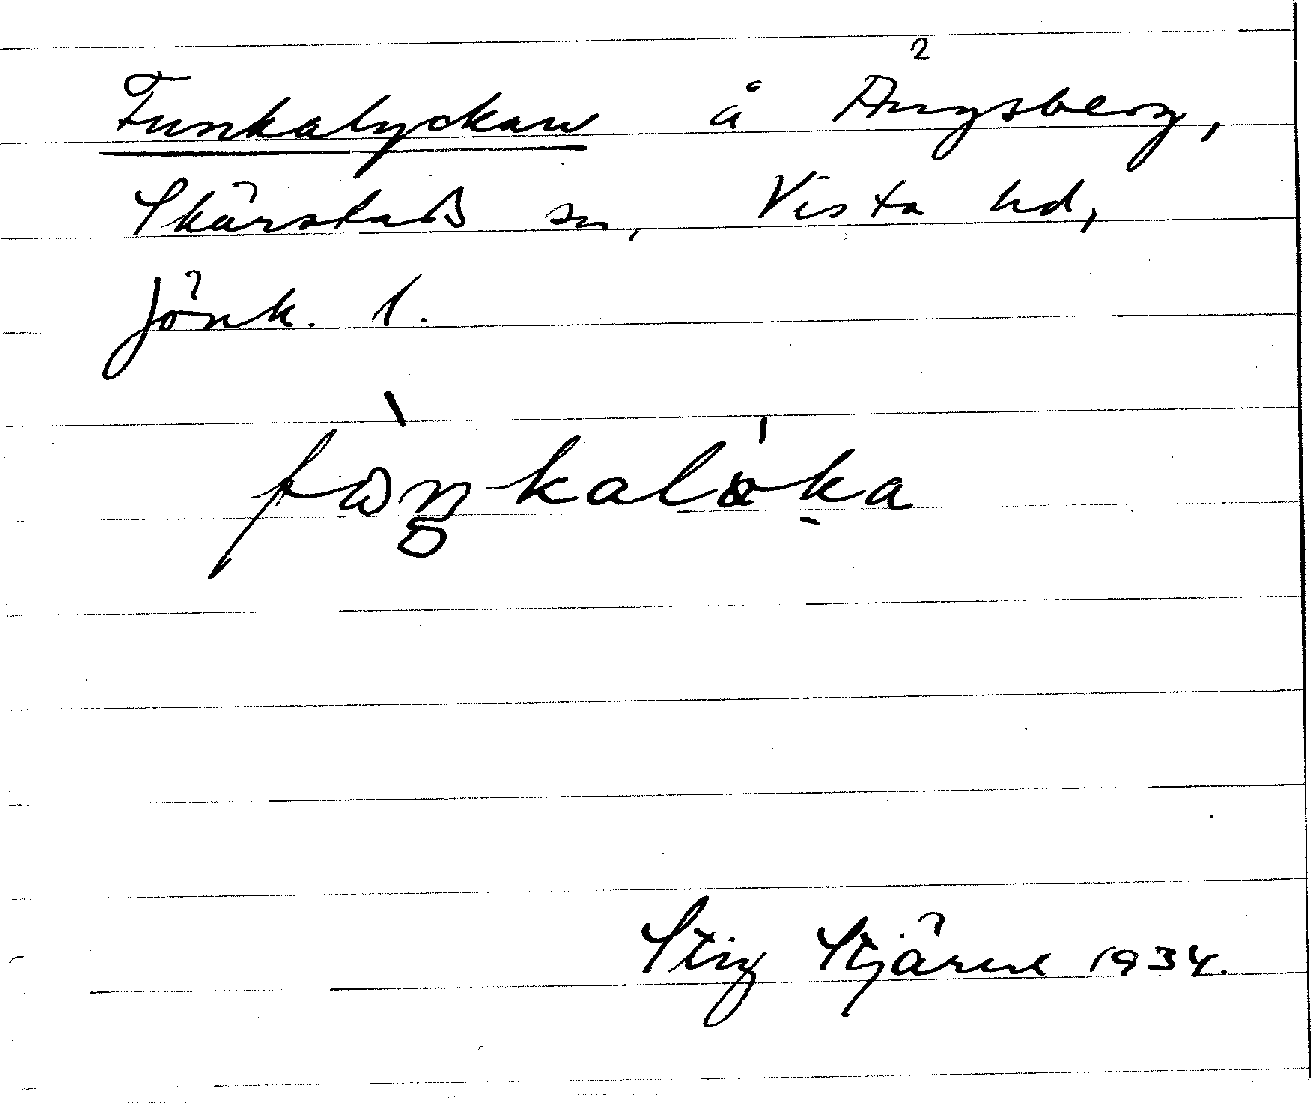 Funkalyckan å Ängsberg,
Skärstad sn, Vista hd,
Jönk. l.
Stig Stjärne 1934.